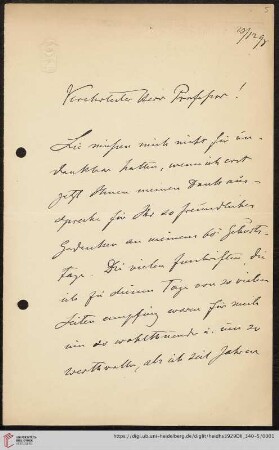 10/12 98
Verehrtester Herr Professor!
Sie müssen mich nicht für un-
dankbar halten, wenn ich erst
jetzt Ihnen meinen Dank aus-
spreche für Ihr so freundliches
Gedenken an meinem 60 Geburts-
tage. Die vielen Zuschriften, die
ich zu diesem Tage von so vielen
Seiten empfing waren für mich
um so wohlthuender u. um so
werthvoller, als ich seit Jahren
https://digi.ub.uni-heidelberg.de/diglit/heidhs1929DII_140-5/0001